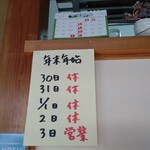 年末年始
30日 休
31日 休
1/1日 休
2日 休
3日 営業